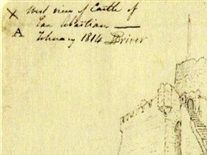 X West view of Castle of
San Sebastian —
A February 1814